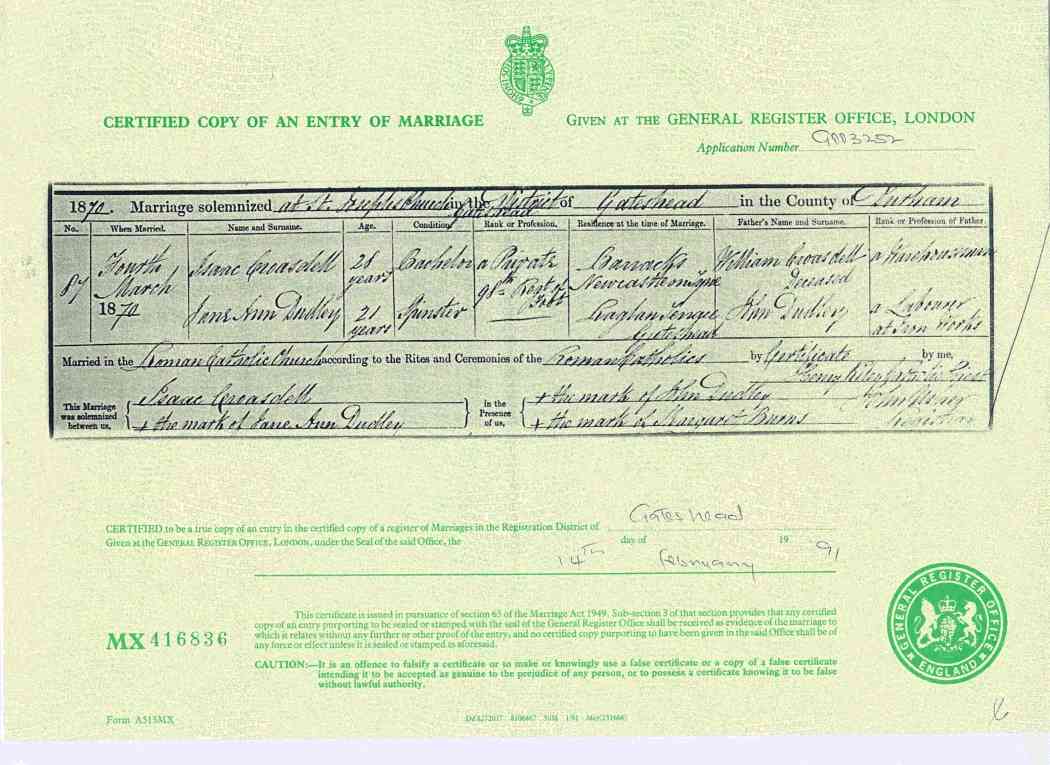 CERTIFIED COPY OF AN ENTRY OF MARRIAGE
GIVEN AT THE GENERAL REGISTER OFFICE, LONDON
Application Number G003252
1870. Marriage solemnized at St. Joseph's Church Gateshead in the District of Gateshead in the County of Durham
No. When Married. Name and Surname. Age. Condition. Rank or Profession. Residence at the time of Marriage. Father's Name and Surname. Rank or Profession of Father.
87 Fourth March 1870 Isaac Croasdell 28 years Bachelor a Private 98th Regt of Foot Barracks Newcastle on Tyne William Croasdell Deceased a Warehouseman
Jane Ann Dudley 21 years Spinster Raglan Gateshead John Dudley a Labourer at Iron Works
Married in the Roman Catholic Church according to the Rites and Ceremonies of the Roman Catholics by Certificate by me,
Henry Riley
This Marriage was solemnized between us,
Isaac Croasdell
+ the mark of Jane Ann Dudley
in the Presence of us,
+ the mark of John Dudley
+ the mark of Margaret Burns
Registrar
CERTIFIED to be a true copy of an entry in the certified copy of a register of Marriages in the Registration District of Gateshead
Given at the GENERAL REGISTER OFFICE, LONDON, under the Seal of the said Office, the 14TH day of February 19 91
This certificate is issued in pursuance of section 65 of the Marriage Act 1949. Sub-section 3 of that section provides that any certified
copy of an entry purporting to be sealed or stamped with the seal of the General Register Office shall be received as evidence of the marriage to
which it relates without any further or other proof of the entry, and no certified copy purporting to have been given in the said Office shall be of
any force or effect unless it is sealed or stamped as aforesaid.
MX 416836
CAUTION:—It is an offence to falsify a certificate or to make or knowingly use a false certificate or a copy of a false certificate
intending it to be accepted as genuine to the prejudice of any person, or to possess a certificate knowing it to be false
without lawful authority.
GENERAL REGISTER OFFICE
ENGLAND
Form A515MX